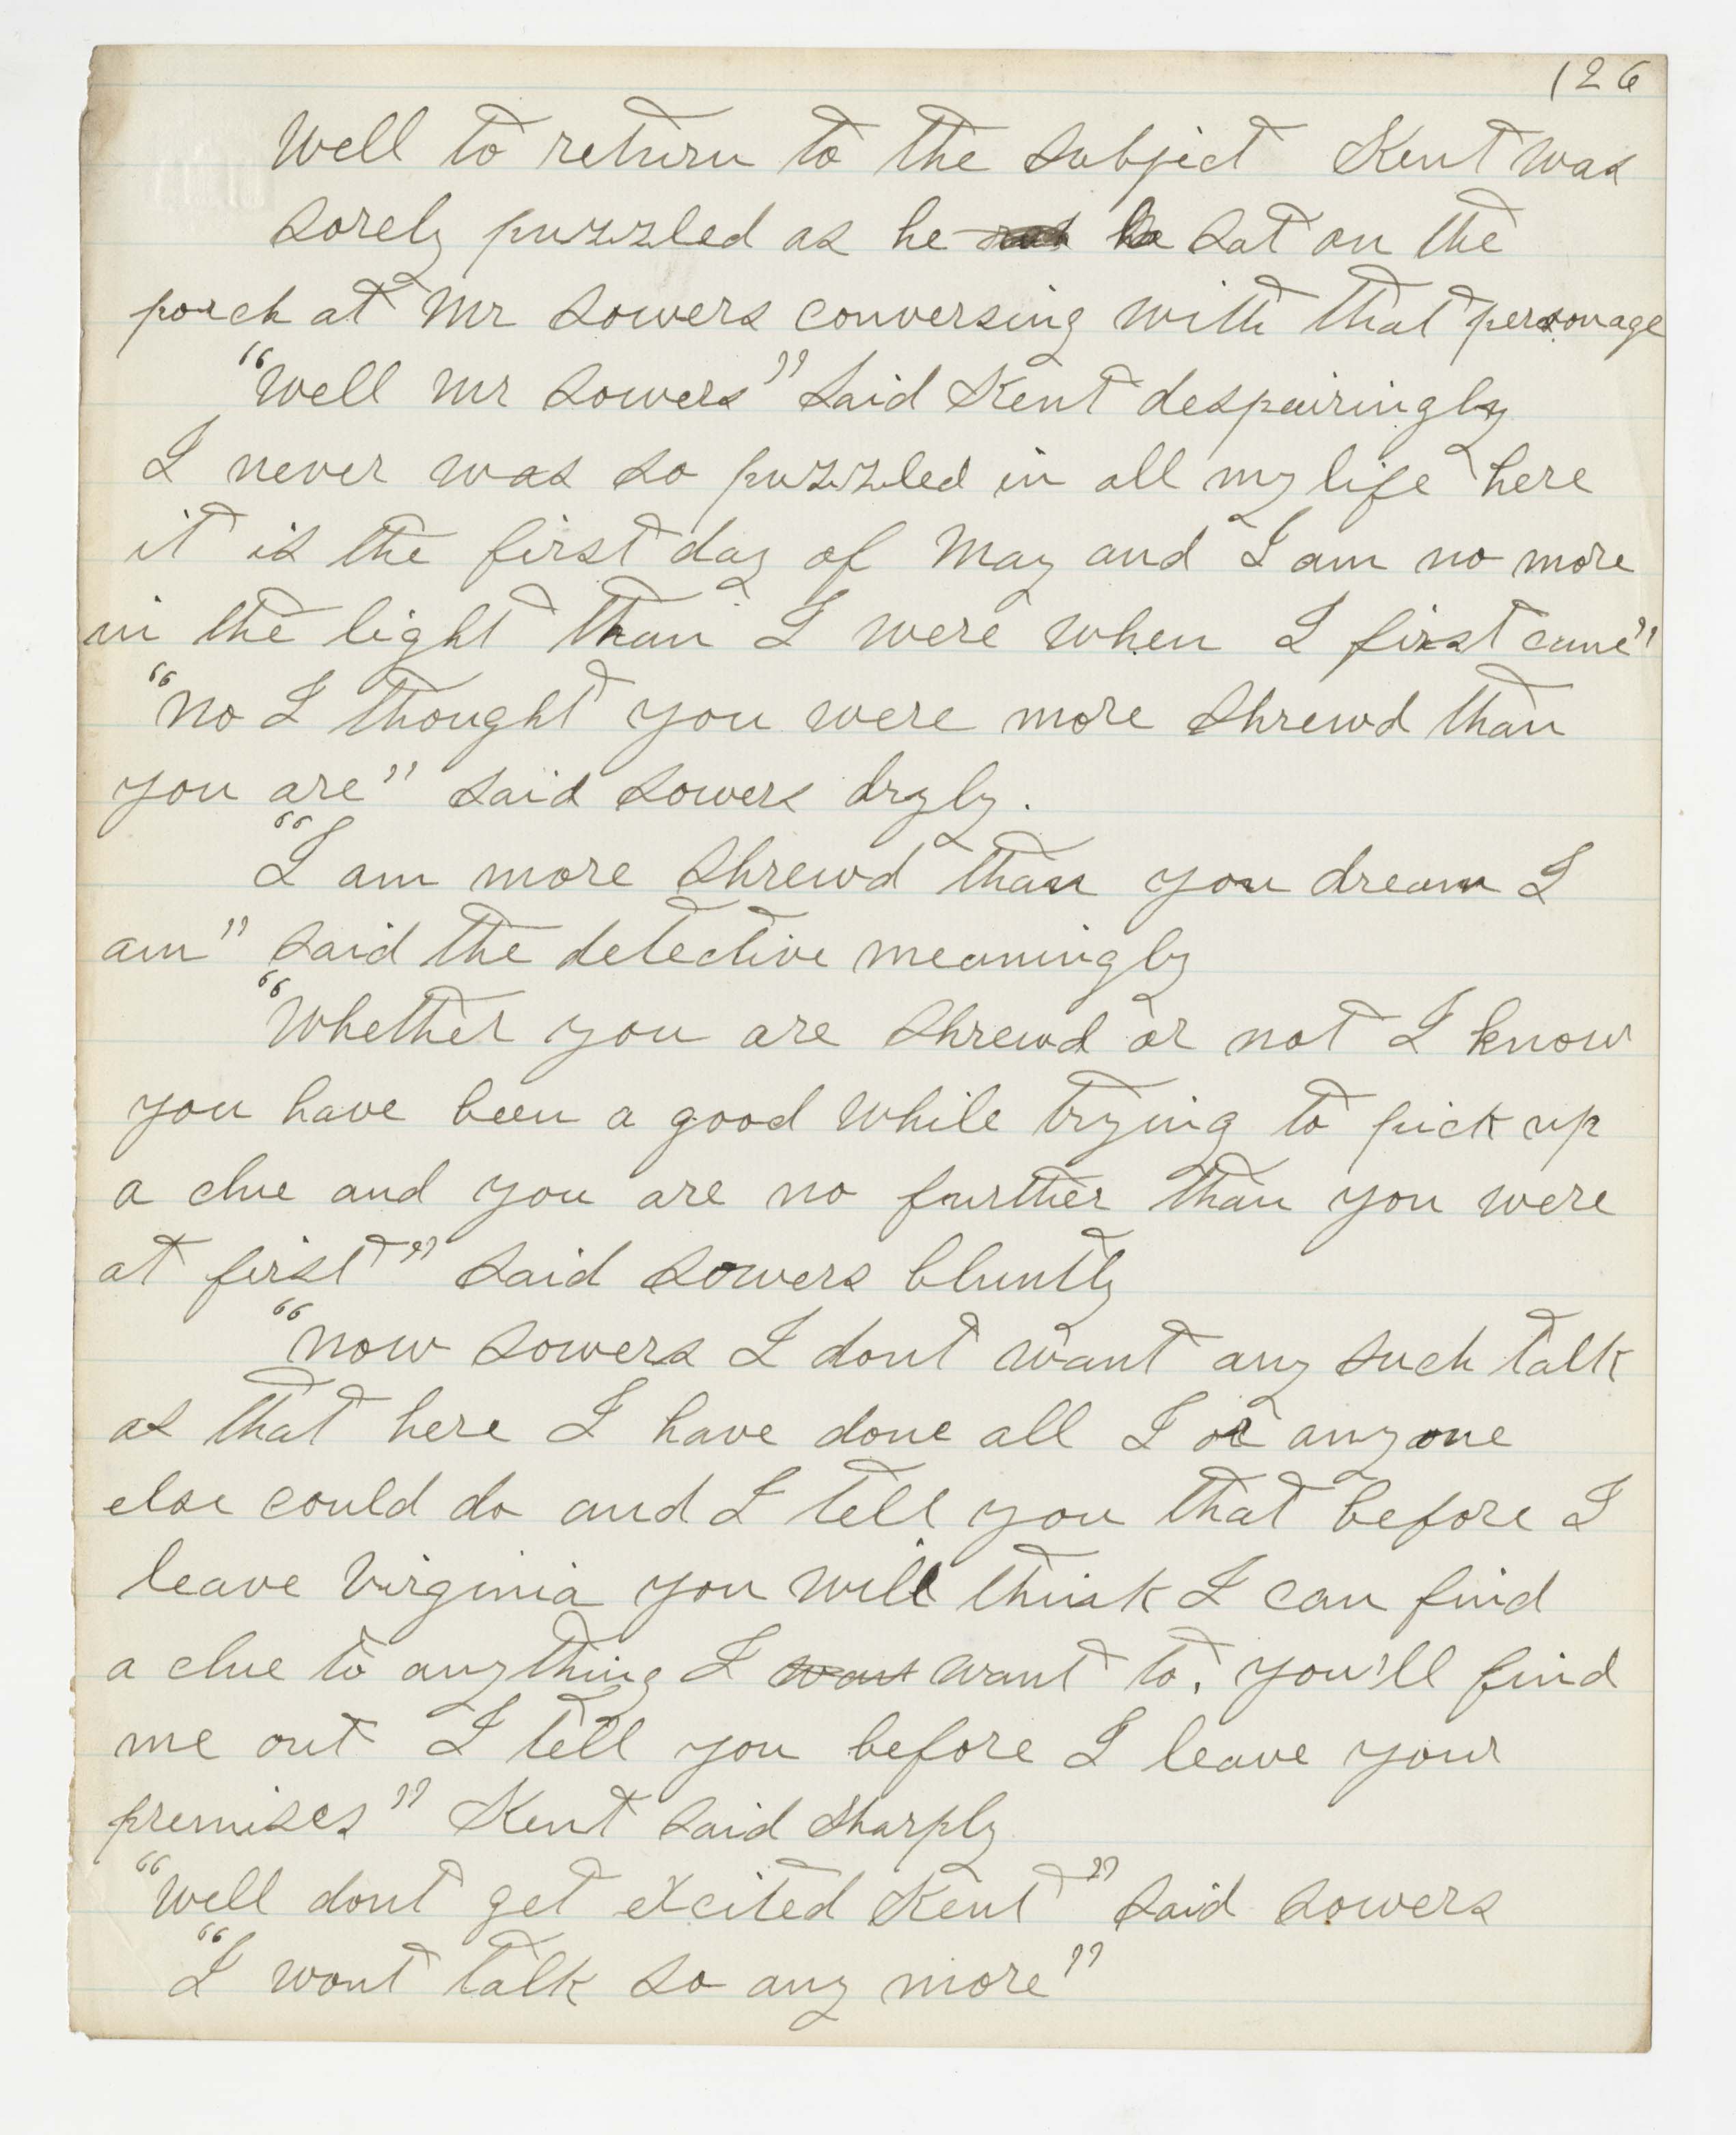 126
Well to return to the subject Kent was
sorely puzzled as he sat on the
porch at Mr Sowers conversing with that personage
"Well Mr Sowers" said Kent despairingly
I never was so puzzled in all my life here
it is the first day of May and I am no more
in the light than I were when I first came"
"No I thought you were more shrewd than
you are" said Sowers dryly.
"I am more shrewd than you dream I
am" said the detective meaningly
"Whether you are shrewd or not I know
you have been a good while trying to pick up
a clue and you are no further than you were
at first" said Sowers bluntly
"Now Sowers I dont want any such talk
as that here I have done all I or anyone
else could do and I tell you that before I
leave Virginia you will think I can find
a clue to anything I want want to. You'll find
me out I tell you before I leave your
premises" Kent said sharply
"Well dont get excited Kent" said Sowers
"I wont talk so any more"